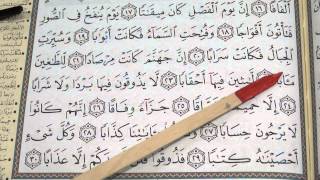 أَلْفَافًا ﴿١٦﴾ إِنَّ يَوْمَ الْفَصْلِ كَانَ مِيقَاتًا ﴿١٧﴾ يَوْمَ يُنفَخُ فِي الصُّورِ
فَتَأْتُونَ أَفْوَاجًا ﴿١٨﴾ وَفُتِحَتِ السَّمَاءُ فَكَانَتْ أَبْوَابًا ﴿١٩﴾ وَسُيِّرَتِ
الْجِبَالُ فَكَانَتْ سَرَابًا ﴿٢٠﴾ إِنَّ جَهَنَّمَ كَانَتْ مِرْصَادًا ﴿٢١﴾ لِلطَّاغِينَ
مَآبًا ﴿٢٢﴾ لَابِثِينَ فِيهَا أَحْقَابًا ﴿٢٣﴾ لَا يَذُوقُونَ فِيهَا بَرْدًا وَلَا شَرَابًا
﴿٢٤﴾ إِلَّا حَمِيمًا ﴿٢٥﴾ جَزَاءً وِفَاقًا ﴿٢٦﴾ إِنَّهُمْ كَانُوا
لَا يَرْجُونَ حِسَابًا ﴿٢٧﴾ بِآيَاتِنَا كِذَّابًا ﴿٢٨﴾ وَكُلَّ شَيْءٍ
أَحْصَيْنَاهُ كِتَابًا ﴿٢٩﴾ فَذُوقُوا فَلَن نَّزِيدَكُمْ إِلَّا عَذَابًا ﴿٣٠﴾